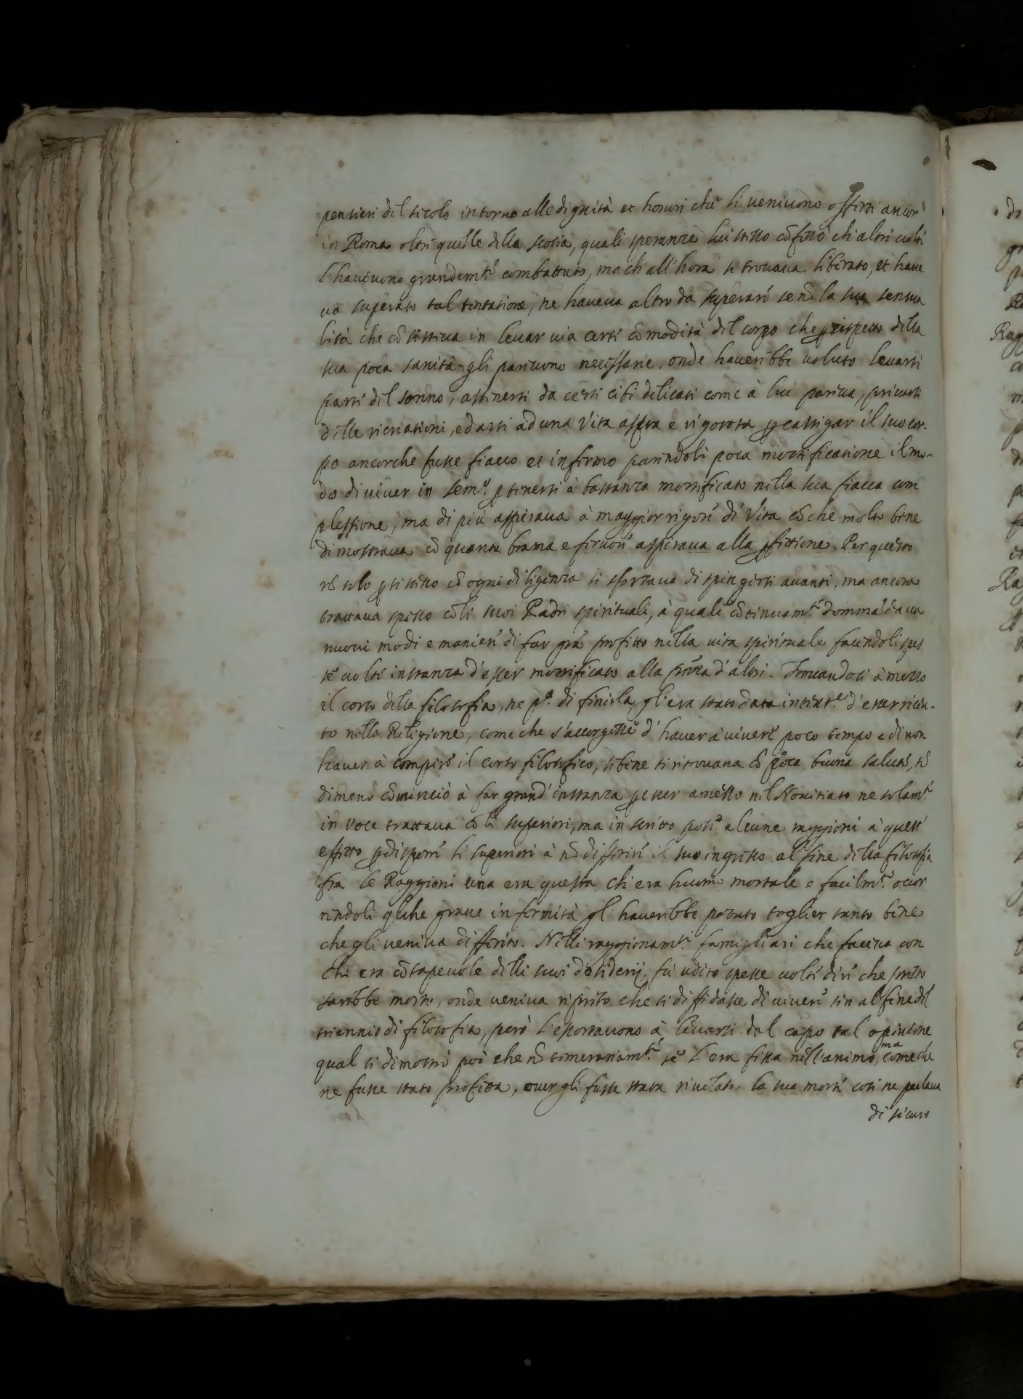 pensieri del secolo intorno alle dignità et honori che li venivono offerti ancor
in Roma oltr quelle della Scotia, quali speranze lui stesso cõfessò ch'altri volti
l'havevono grandemte combattuto, ma ch'all'hora si trovava liberato, et have
va superato tal tentatione, ne haveva altro da superare se nõ la sua sensua
lità che cõsisteva in levar via certe cõmodità del corpo che p rispetto della
sua poca sanità gli parevono necessarie, onde haverebbe voluto levarsi
parte del sonno, astinersi da certi cibi delicati come à lui pareva, privarsi
delle ricreationi, e darsi ad una vita aspra e rigorosa p castigar il suo cor-
po ancorche fusse fiacco et infermo parendoli poca mortificatione il mo-
do di viver in Semo. p tenersi à bastanza mortificato nella sua fiacca com
plessione, ma di più aspirava à maggior rigore di vita cõ che molto bene
dimostrava cõ quanta brama e fervore aspirava alla pfettione. Per questo
nõ solo p se stesso cõ ogni diligenza si sforzava di spingersi avanti, ma ancora
trattava spesso cõ li suoi Padri spirituali, à quali cõtinuamte dommãdava
nuovi modi e maniere di far grã profitto nella vita spirituale facendoli spes
se volte instanza d'esser mortificato alla pñza d'altri. Trovandosi à mezzo
il corso della filosofia, ne pa. di finirla, gl'era stato data intente d'esser ricevu-
to nella Religione, come che s'accorgesse d'haver à vivere poco tempo e di non
haver à compire il corso filosofico, si bene si ritrovava cõ poca buona salute, nõ
dimeno cõminciò à far grand'instanza p esser amesso nel Novitiato ne solamte
in voce trattava cõ li superiori, ma in scritto pose alcune raggioni à quest'
effetto p disporre li superiori à nõ differire il suo ingresso al fine della filosofia
fra le Raggioni una era questa ch'era huomo mortale e facilmte occor
rendoli qlche grave infermità gl'haverebbe potuto toglier tanto bene
che gli veniva differito. Nelli raggionamti famigliari che faceva con
chi era cõsapevole delli suoi desiderij, fu udito spesse volte dire che presto
sarebbe morto, onde veniva ripreso che si diffidasse di vivere sin al fine del
triennio di filosofia, però l'esortavono à levarsi dal capo tal opinione
qual si dimostrò poi che nõ temerariamte se l'era fissa nell'animo, ma come che
ne fusse stato profeta, over gli fusse stata rivelata la sua morte così ne parlava
di sicuro